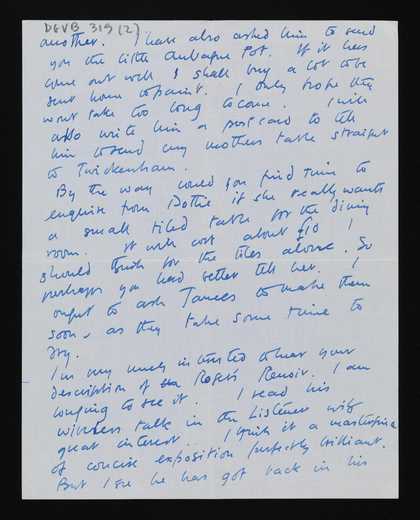 DGVB 319 (2)
another. I have also asked him to send
you the little Aubagne Pot. If it has
come out well I shall buy a lot to be
sent home to paint. I only hope they
wont take too long to come. I will
also write him a postcard to tell
him to send my mothers table straight
to Twickenham.
By the way could you find time to
enquire from Dottie if she really wants
a small tiled table for the dining
room. It will cost about £10 I
should think for the tiles alone. So
perhaps you had better tell her. I
ought to ask to make them
soon, as they take some time to
dry.
I'm very much interested to hear your
description of Roger's Renoir. I am
longing to see it. I read his
wireless talk in the Listener with
great interest. I think it a masterpiece
of concise exposition perfectly brilliant.
But I see he has got back in his